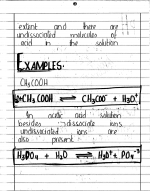 extent and there are
undissociated molecules of
acid in the solution
EXAMPLES:
CH₃COOH
CH₃COOH ⇌ CH₃COO⁻ + H₃O⁺
In acetic acid solution
besides dissociate ions
undissociated ions are
also present.
H₃PO₄ + H₂O ⇌ H₃O⁺ + PO₄⁻³